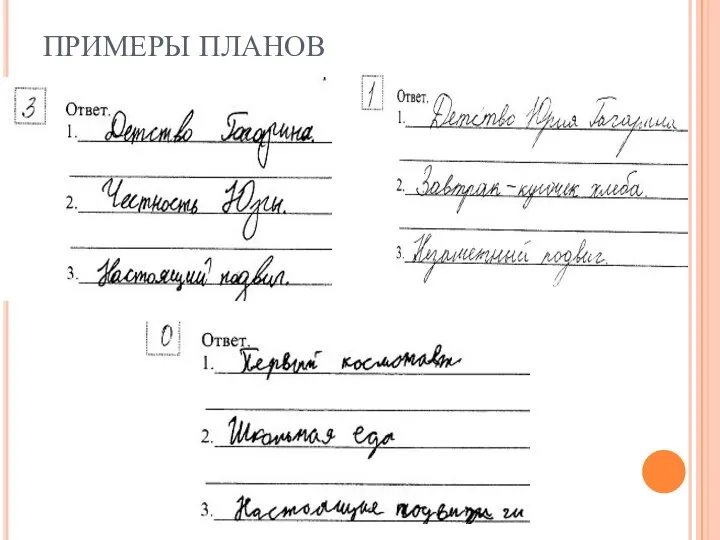 ПРИМЕРЫ ПЛАНОВ
3
Ответ.
1. Детство Гагарина.
2. Честность Юры.
3. Настоящий подвиг.
1
Ответ.
1. Детство Юрия Гагарина
2. Завтрак – кусочек хлеба.
3. Незаметный подвиг.
0
Ответ.
1. Первый космонавт
2. Школьная еда
3. Настоящие подвиги